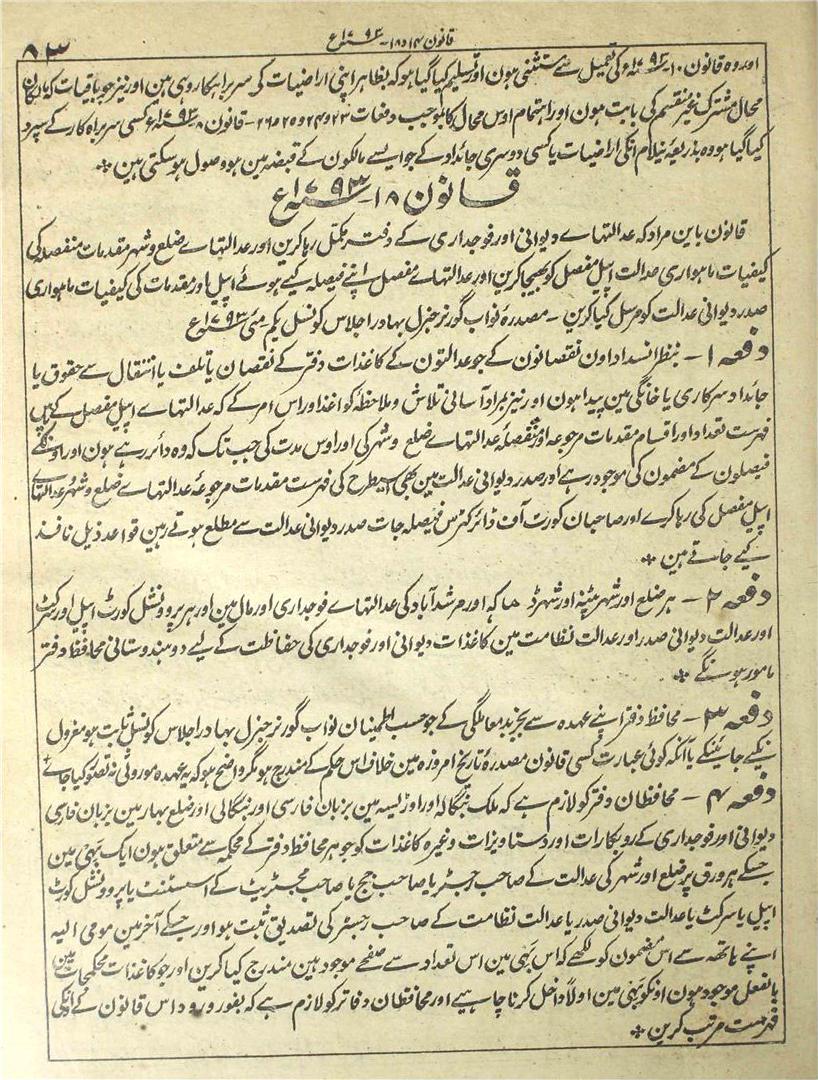 قانون ۱۴ و ۱۸ - ۱۷۹۳ء
۸۳
اور وہ قانون ۱۰ - ۱۷۹۳ء کی تعمیل سے مستثنیٰ ہون اور تسلیم کیا گیا ہو کہ بظاہر اپنی اراضیات کی سربراہکار وہی ہین اور نیز جو باقیات کہ مالکان
محال مشترک غیر منقسم کی بابت ہون اور اہتمام اوس محال کا بموجب دفعات ۲۳ و ۲۴ و ۲۵ و ۲۶ - قانون ۸ - ۱۷۹۳ء کسی سربراہ کار کے سپرد
کیا گیا ہو وہ بذریعۂ نیلام انکی اراضیات یا کسی دوسری جائداد کے جو ایسے مالکون کے قبضہ مین ہو وصول ہو سکتی ہین *
قانون ۱۸ - ۱۷۹۳ء
قانون باین مراد کہ عدالتہاے دیوانی اور فوجداری کے دفتر مکمل رہا کرین اور عدالتہاے ضلع و شہر مقدمات منفصلہ کی
کیفیات ماہواری عدالت اپیل مفصل کو بھیجا کرین اور عدالتہاے مفصل اپنے فیصلہ کیے ہوئے اپیل اور مقدمات کی کیفیات ماہواری
صدر دیوانی عدالت کو مرسل کیا کرین - مصدرۂ نواب گورنر جنرل بہادر اجلاس کونسل یکم مئی ۱۷۹۳ء
دفعہ ۱ - بنظر انسداد اون نقصانون کے جو عدالتون کے کاغذات دفتر کے نقصان یا تلف یا انتقال سے حقوق یا
جائداد سرکاری یا خانگی مین پیدا ہون اور نیز بمراد آسانی تلاش و ملاحظہ کواغذ اور اس امر کے کہ عدالتہاے اپیل مفصل کے پاس
فہرست تعداد اور اقسام مقدمات مرجوعہ اور منفصلۂ عدالتہاے ضلع و شہر کی اور اوس مدت کی جب تک کہ وہ دائر رہے ہون اور اونکے
فیصلون کے مضمون کی موجود رہے اور صدر دیوانی عدالت مین بھی اسیطرح کی فہرست مقدمات مرجوعۂ عدالتہاے ضلع و شہر و عدالتہاے
اپیل مفصل کی رہا کرے اور صاحبان کورٹ آف ڈائرکٹرس فیصلہ جات صدر دیوانی عدالت سے مطلع ہوتے رہین قواعد ذیل نافذ
کیے جاتے ہین *
دفعہ ۲ - ہر ضلع اور شہر پٹنہ اور شہر ڈھاکہ اور مرشدآباد کی عدالتہاے فوجداری اور مال مین اور ہر پروونشل کورٹ اپیل اور سرکٹ
اور عدالت دیوانی صدر اور عدالت نظامت مین کاغذات دیوانی اور فوجداری کی حفاظت کے لیے دو ہندوستانی محافظ دفتر
مامور ہونگے *
دفعہ ۳ - محافظ دفتر اپنے عہدہ سے بجز بدمعاملگی کے جو حسب اطمینان نواب گورنر جنرل بہادر اجلاس کونسل ثابت ہو معزول
نکیے جائینگے باآنکہ کوئی عبارت کسی قانون مصدرۂ تاریخ امروزہ مین خلاف اس حکم کے مندرج ہو مگر واضح ہو کہ یہ عہدہ موروثی نہ تصور کیا جائے *
دفعہ ۴ - محافظان دفتر کو لازم ہے کہ ملک بنگالہ اور اوڑیسہ مین بزبان فارسی اور بنگالی اور ضلع بہار مین بزبان فارسی
دیوانی اور فوجداری کے روبکارات اور دستاویزات وغیرہ کاغذات کو جو ہر محافظ دفتر کے محکمہ سے متعلق ہون ایک بہی مین
جسکے ہر ورق پر ضلع اور شہر کی عدالت کے صاحب رجسٹر یا صاحب جج یا صاحب مجسٹریٹ کے اسسٹنٹ یا پروونشل کورٹ
اپیل یا سرکٹ یا عدالت دیوانی صدر یا عدالت نظامت کے صاحب رجسٹر کی تصدیق ثبت ہو اور جسکے آخر مین مومی الیہ
اپنے ہاتھ سے اس مضمون کو لکھے کہ اس بہی مین اس تعداد سے صفحے موجود ہین مندرج کیا کرین اور جو کاغذات محکمجات مین
بالفعل موجود ہون اونکو بہی مین اولاً داخل کرنا چاہیے اور محافظان دفاتر کو لازم ہے کہ بفور ورود اس قانون کے اونکی
فہرست مرتب کرین *